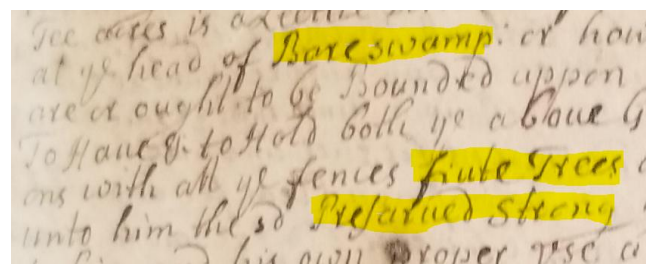 acres is
at ye head of Bareswamp: or how
are or ought to be Bounded uppon
To Haue & to Hold both ye aboue G
ons with all ye fences friute Trees
unto him the sd Preserued Strong
his own proper vse a